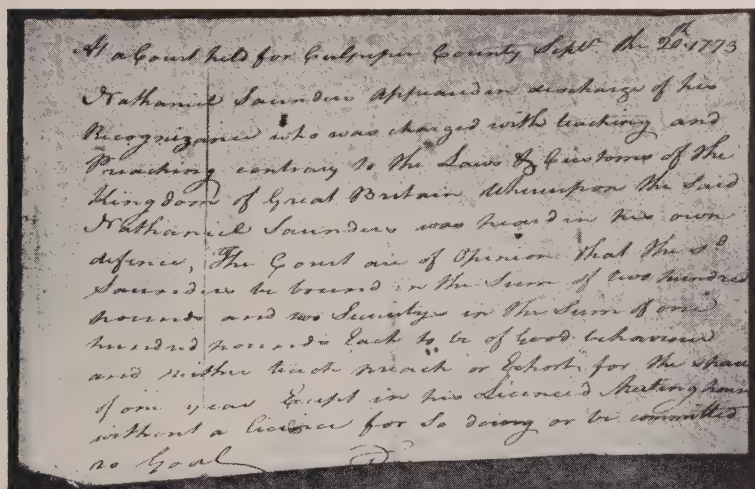 At a Court held for Culpeper County Sept.r the 20th 1773
Nathaniel Saunders appeared in discharge of his
Recognizance who was charged with teaching and
Preaching contrary to the Laws & Customs of the
Kingdom of Great Britain whereupon the said
Nathaniel Saunders was heard in his own
defence, The Court are of Opinion that the sd
Saunders be bound in the Sum of two hundred
pounds and two Securitys in the Sum of one
hundred pounds Each to be of Good behaviour
and neither teach preach or Exhort for the space
of one year Except in his Licence'd Meeting house
without a licence for so doing or be committed
to Goal